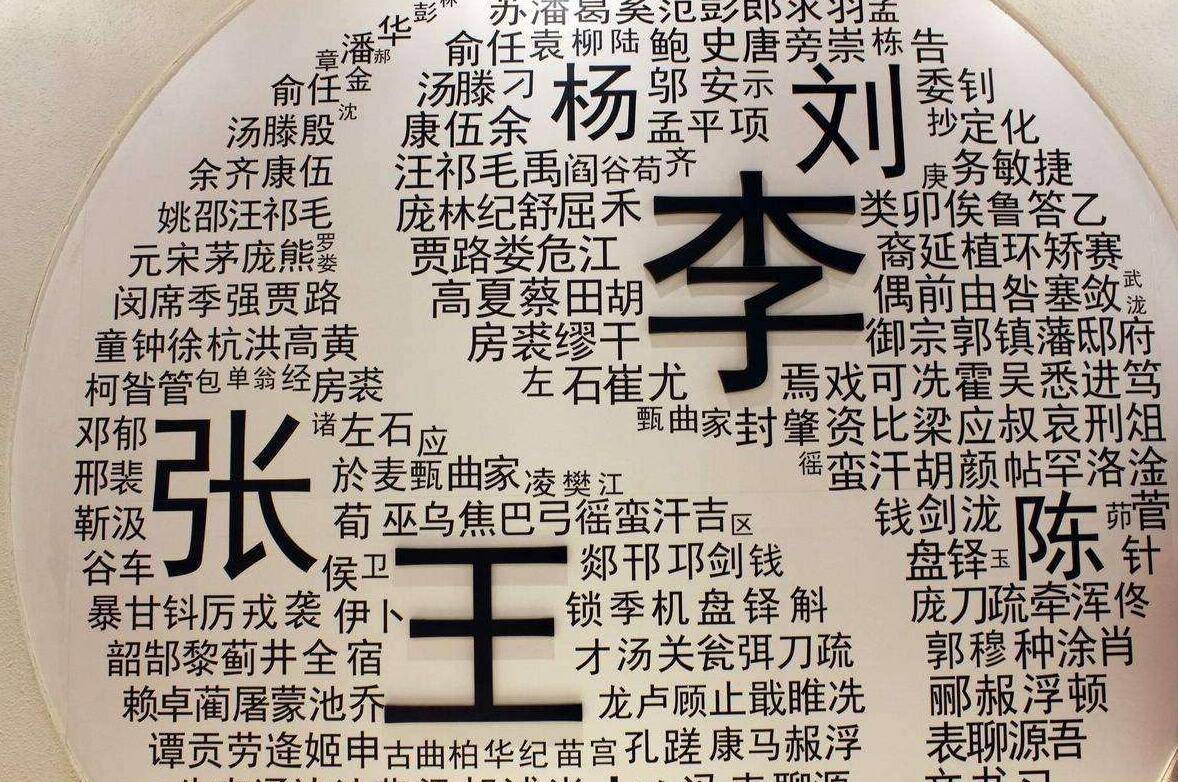 彭
苏潘葛奚范彭郎求羽孟
华
章潘郝 俞任袁柳陆鲍史唐旁崇栋告
俞任金 汤滕刁 杨 邬安示 刘 委钊
沈
汤滕殷 康伍余 孟平项 抄定化
余齐康伍 汪祁毛禹阎谷苟齐 庚务敏捷
姚邵汪祁毛 庞林纪舒屈禾 李 类卯俟鲁答乙
元宋茅庞熊罗娄 贾路娄危江 裔延植环矫赛
闵席季强贾路 高夏蔡田胡 偶前由咎塞敛武泷
童钟徐杭洪高黄 房裘缪干 御宗郭镇藩邸府
柯昝管包单翁经房裘 左石崔尤 焉戏可冼霍吴悉进笃
邓郁 张 诸左石应 甄曲家封肇资比梁应叔哀刑俎
邢裴 於麦甄曲家凌樊江 徭蛮汗胡颜帖罕洛淦
靳汲 荀巫乌焦巴弓徭蛮汗吉区 钱剑泷 陈 茆菅
谷车 侯卫 王 郯邗邛剑钱 盘铎玉 针
暴甘钭厉戎袭伊卜 锁季机盘铎斛 庞刀疏牵浑佟
韶郜黎蓟井全宿 才汤关瓮弭刀疏 郭穆种涂肖
赖卓蔺屠蒙池乔 龙卢顾止戢睢冼 郦赧浮顿
谭贡劳逄姬申古曲柏华纪苗宫孔蹉康马赧浮 表聊源吾